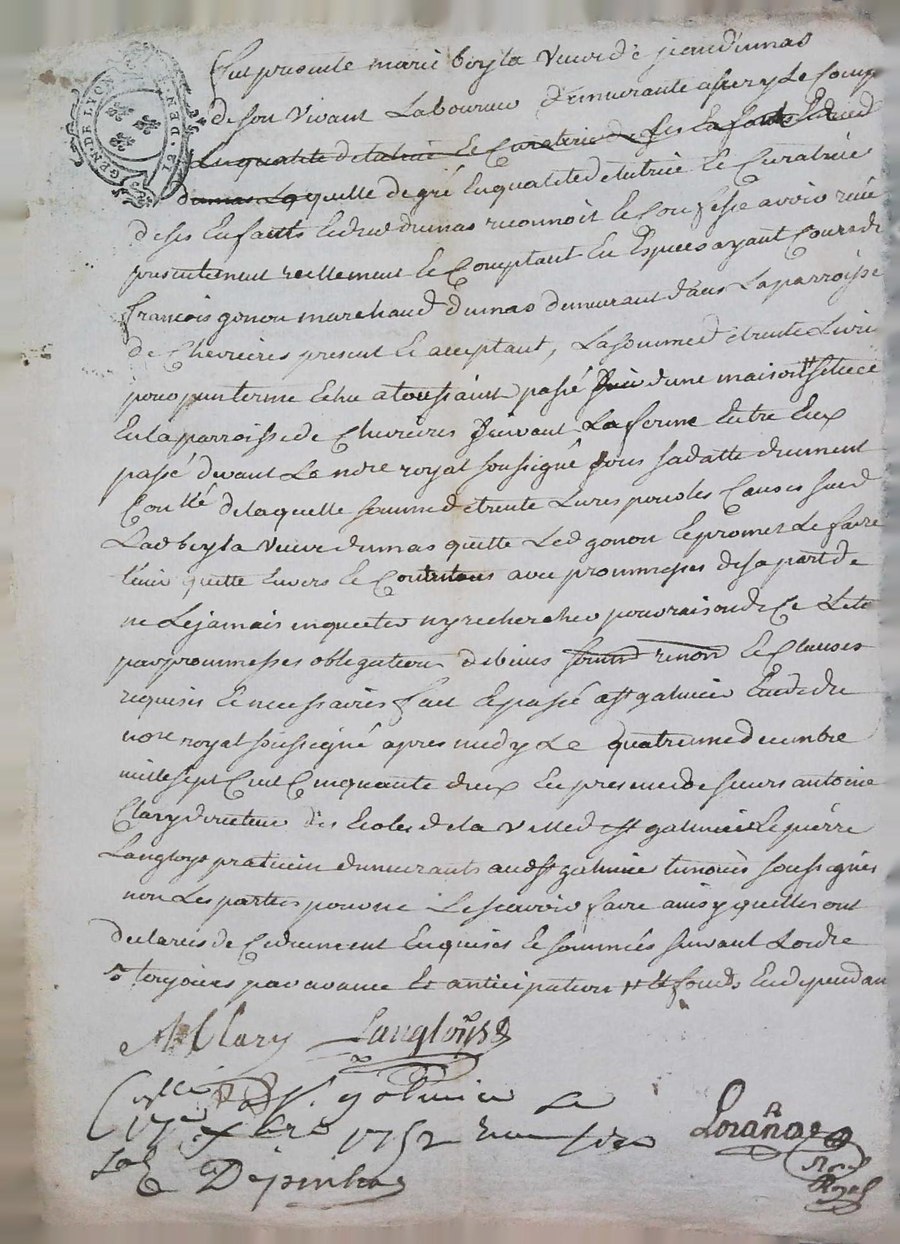 GEN. DE LYON
12. DEN.
fut presente marie beyla veuve de jean dumas
de son vivant Laboureur demeurante a
Enqualité de tutrice Et Curatrice de ses Enfants
dumas Laquelle de gré Enqualité de tutrice Et Curatrice
de ses Enfants dumas reconnoit Et Confesse avoir
presentement reellement Et Comptant En Especes ayant Cours de
francois gonon marchand dumas demeurant dans La parroisse
de Chevrieres present Et acceptant, La somme de trente Livres
pour un terme Echu a toussaint passé d'une maison située
En la parroisse de Chevrieres suivant La ferme Entre Eux
passé devant Le nore royal soussigné sous sa datte duement
Conllé de laquelle somme de trente Livres pour les Causes susd
Lad beyla veuve dumas quitte Led gonon Et promet Le faire
tenir quitte Envers Et Contre tous avec prommesses de sa part de
ne Le jamais inquieter ny rechercher pour raison de Ce Et Ce
par prommesses obligation de biens renon Et Clauses
requises Et necessaires fait Et passé a st galmier Etude du
nore royal soussigné apres midy Le quatrieme decembre
mille sept Cent Cinquante deux En presence de sieurs antoine
Clary directeur des Ecoles de la Ville de st galmier Et pierre
Langloys praticien demeurants aud st galmier temoins soussignés
non Les parties pour ne Le scavoir faire ainsy quelles ont
declarées de Ce duement Enquises Et sommées suivant Lordre
toujours par avance Et anticipation Et fonds En dependan
Clary Langloys
Conllé a St galmier Le
17e Xbre 1752
Dejoinhas
Loraña
Nore
Royal